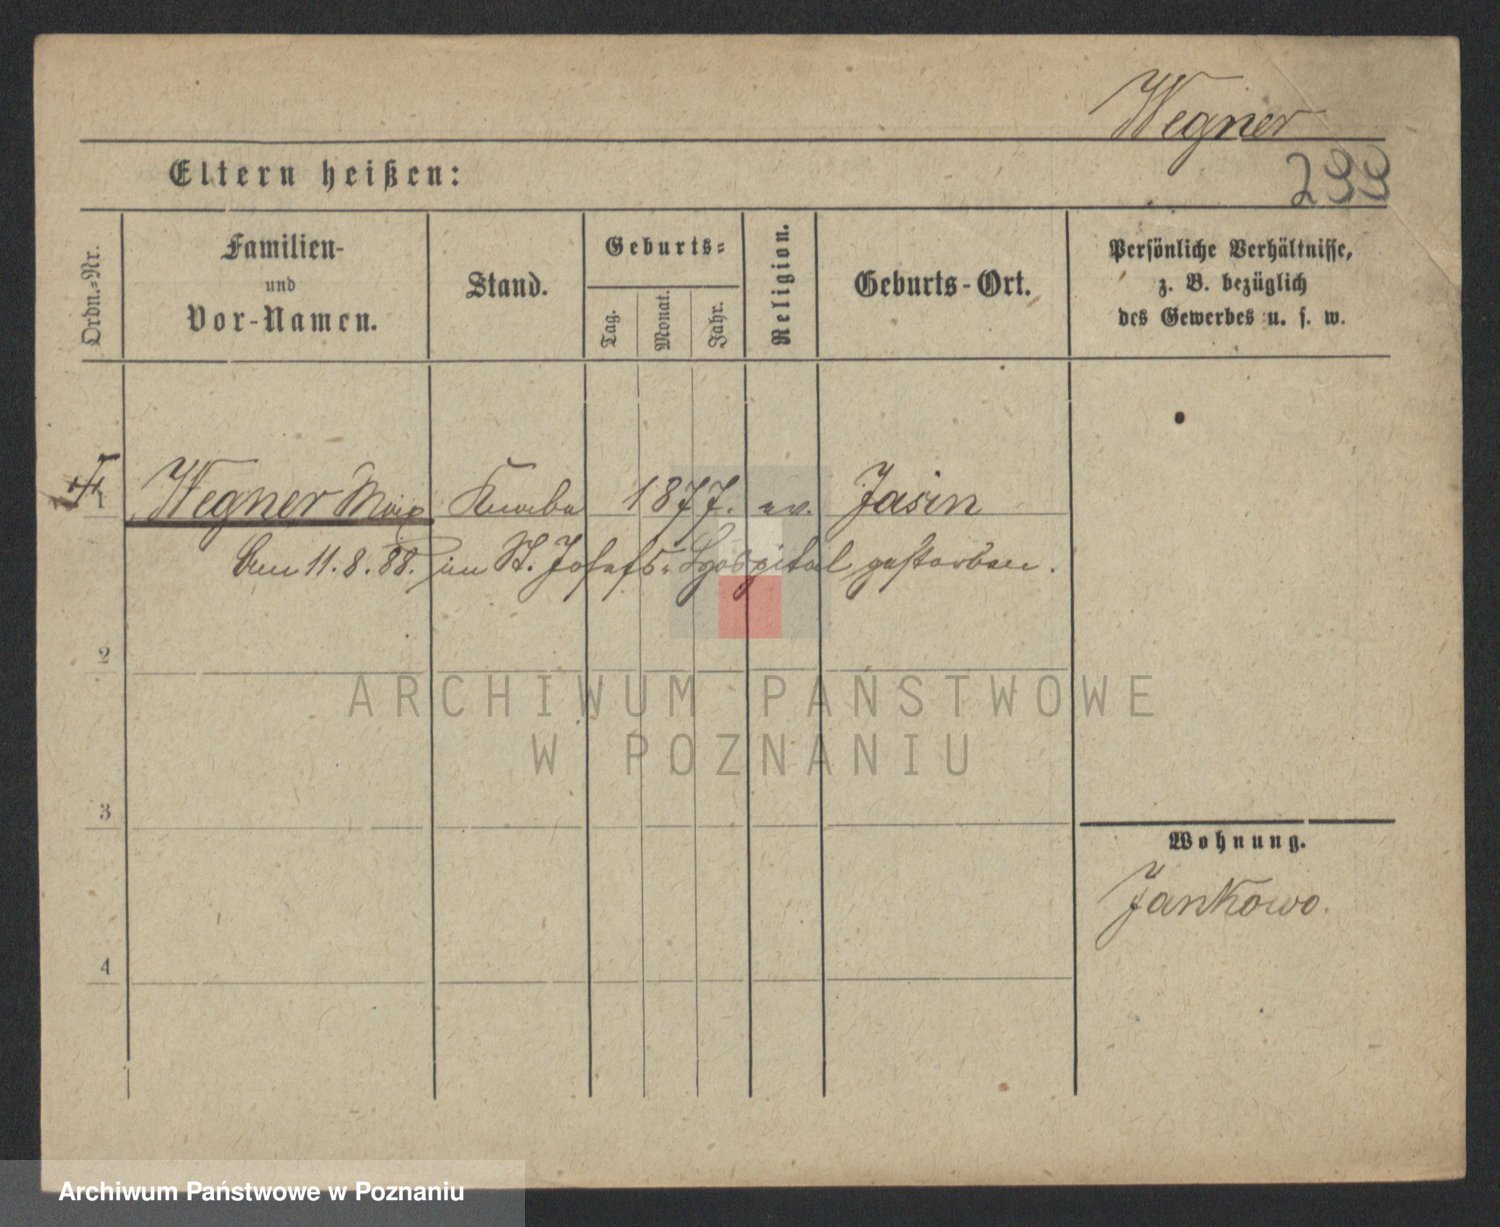 Wegner
Eltern heißen:
Ordn.-Nr.
Familien-
und
Vor-Namen.
Stand.
Geburts-
Tag.
Monat.
Jahr.
Religion.
Geburts-Ort.
Persönliche Verhältnisse,
z. B. bezüglich
des Gewerbes u. s. w.
Wegner Max Knabe 1877. ev. Jasin
Am 11.8.88. im St. Josefs-Hospital gestorben.
2
3
4
Wohnung.
Jankowo.
ARCHIWUM PAŃSTWOWE
W POZNANIU
Archiwum Państwowe w Poznaniu